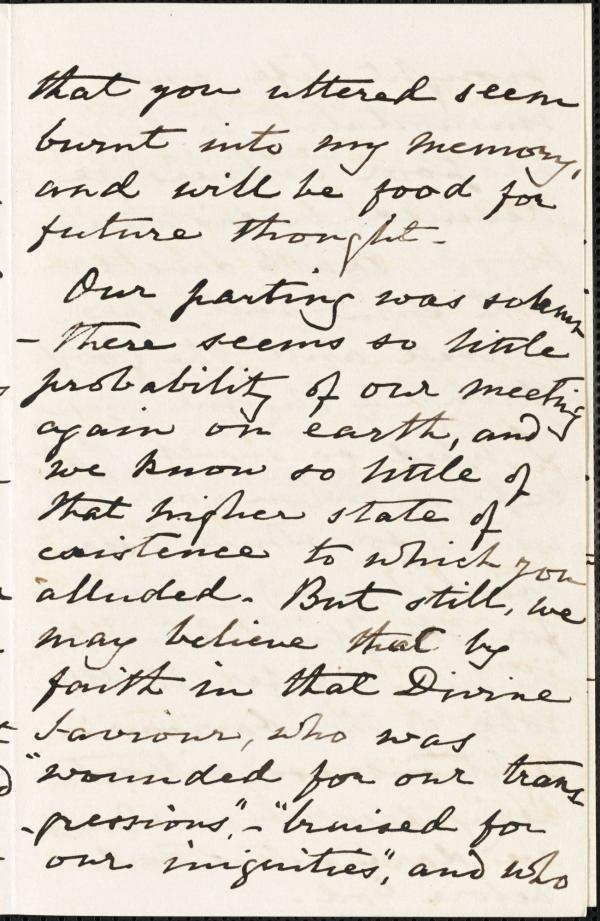 that you uttered seem
burnt into my memory,
and will be food for
future thought.
Our parting was solemn
- there seems so little
probability of our meeting
again on earth, and
we know so little of
that higher state of
existence to which you
alluded. But still, we
may believe that by
faith in that Divine
Saviour, who was
"wounded for our trans
-gressions", - "bruised for
our iniquities", and who